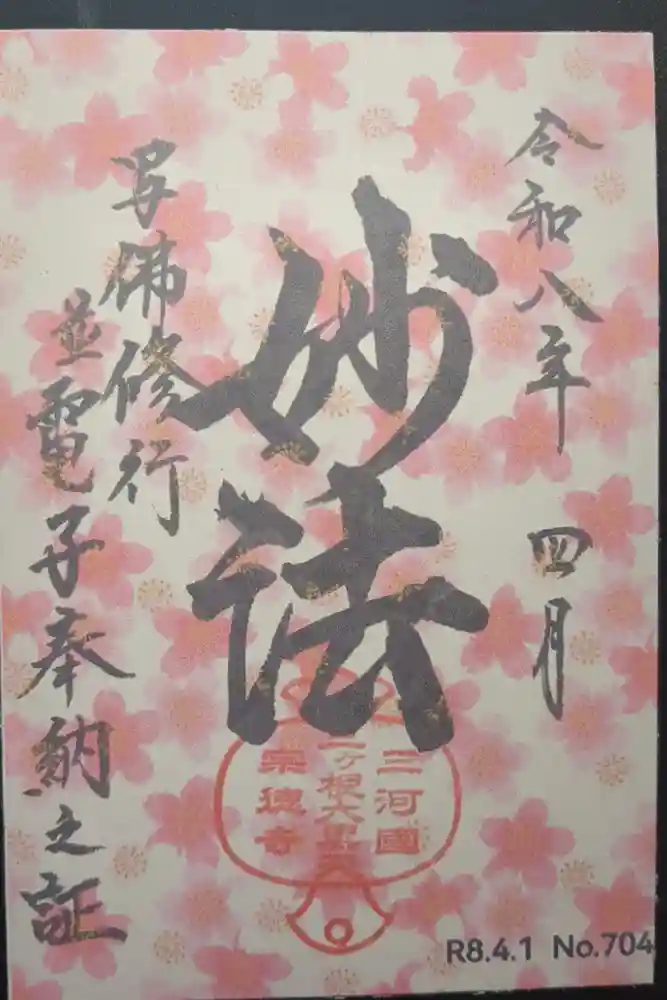 令和八年 四月
妙法
写佛修行
並電子奉納之証
三河國
三ヶ根大黒天
宗徳寺
R8.4.1 No.704